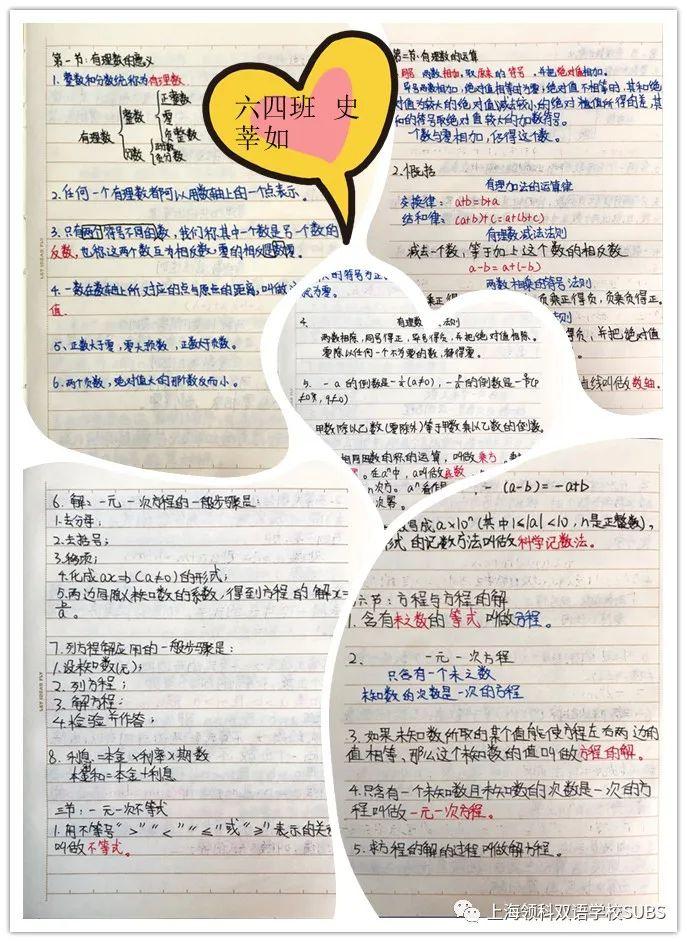 六四班 史
莘如
第一节：有理数的意义
1. 整数和分数统称为有理数
正整数
整数
零
有理数
负整数
分数
2. 任何一个有理数都可以用数轴上的一点表示。
3. 只有两个符号不同的数，我们称其中一个数是另一个数的
反数，也称这两个数互为相反数，零的相反数是零。
4. 一数在数轴上所对应的点与原点的距离，叫做
值
5、正数大于零，零大于负数，正数大于负数。
6. 两个负数，绝对值大的那个数反而小。
有理数的运算
两数相加，取原来的符号，并把绝对值相加。
异号两数相加，绝对值相等时为零；绝对值不相等时，其和的绝
对值为较大的绝对值减去较小的绝对值所得的差，其
和的符号取绝对值较大的加数符号。
一个数与零相加，仍得这个数。
2. 概括
有理加法的运算律
交换律： a+b=b+a
结和律： (a+b)+c=a+(b+c)
有理数减法法则
减去一个数，等于加上这个数的相反数
a-b=a+(-b)
两数相乘的符号法则
负乘正得负，负乘负得正。
并把绝对值
直线叫做数轴。
的符号为正
为零。
4. 有理数 法则
两数相除，同号得正，异号得负，并把绝对值相除。
零除以任何一个不为零的数，都得零。
甲数除以乙数(零除外)等于甲数乘以乙数的倒数。
相同因数的积的运算，叫做乘方，
在aⁿ中，a叫做底数，
n次方。 aⁿ看作是
次幂。
-(a-b)=-a+b
写成a×10ⁿ(其中1≤|a|<10，n是正整数)，
形式的记数方法叫做科学记数法。
6. 解：一元一次方程的一般步骤是：
1. 去分母；
2. 去括号；
3. 移项；
4. 化成ax=b(a≠0)的形式；
5. 两边同除以未知数的系数，得到方程的解x=
b/a。
7. 列方程解应用的一般步骤是：
1. 设未知数(元)；
2. 列方程；
3. 解方程；
4. 检验并作答；
8. 利息=本金×利率×期数
本利和=本金+利息
三节：一元一次不等式
1. 用不等号“>”“<”“≤”或“≥”表示的关
叫做不等式。
节：方程与方程的解
1. 含有未知数的等式叫做方程。
2. 一元一次方程
只含有一个未知数
未知数的次数是一次的方程
3. 如果未知数所取的某个值能使方程左右两边的
值相等、那么这个未知数的值叫做方程的解。
4. 只含有一个未知数且未知数的次数是一次的方
程叫做一元一次方程。
5. 求方程的解的过程叫做解方程。
上海领科双语学校SUBS